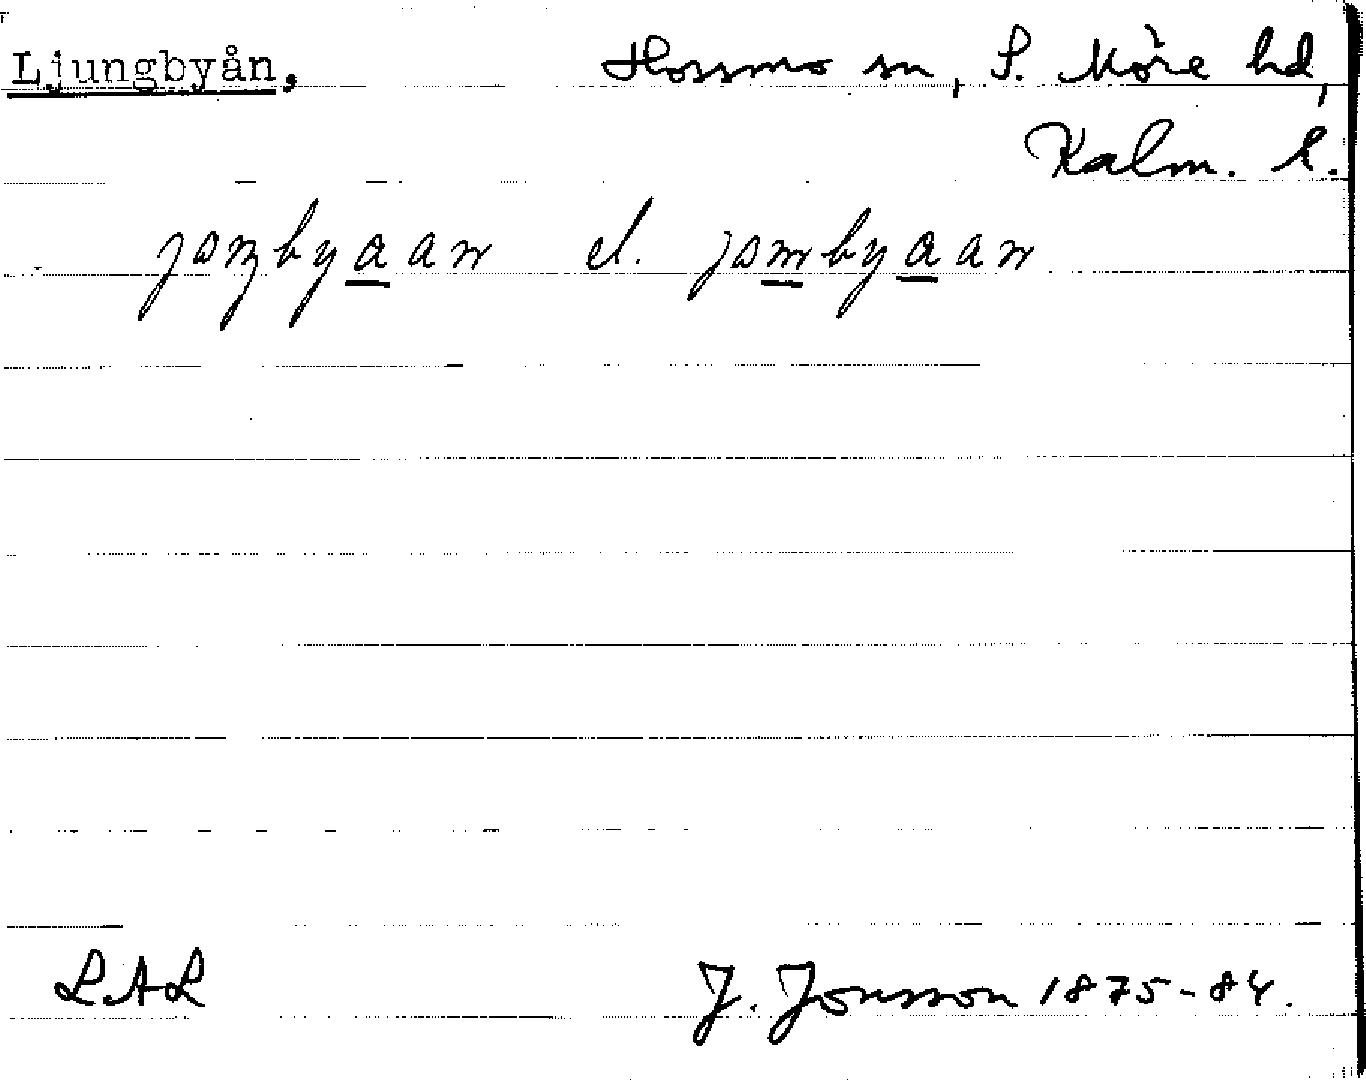 Ljungbyån, Hossmo sn, S. Möre hd,
Kalm. l.
jɷŋbyaan el. jɷmbyaan
LAL J. Jonsson 1875-84.